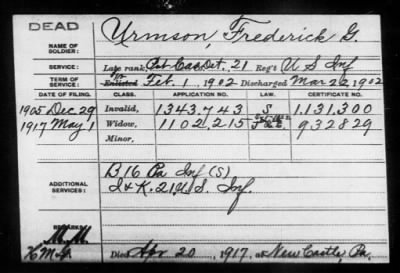 DEAD
NAME OF SOLDIER: Urmson, Frederick G.
SERVICE: Late rank, Pvt Cas Det. 21 Reg't U S Inf
TERM OF SERVICE: Enlisted Feb. 1, 1902 Discharged Mar 22, 1902
DATE OF FILING. CLASS. APPLICATION NO. LAW. CERTIFICATE NO.
1905 Dec 29 Invalid, 1343,743 S 1,131,300
1917 May 1 Widow, 1102,215 932829
Minor,
ADDITIONAL SERVICES: B 16 Pa Inf (S)
I & K. 21 U. S. Inf.
REMARKS:
Died Apr 20, 1917, at New Castle, Pa.